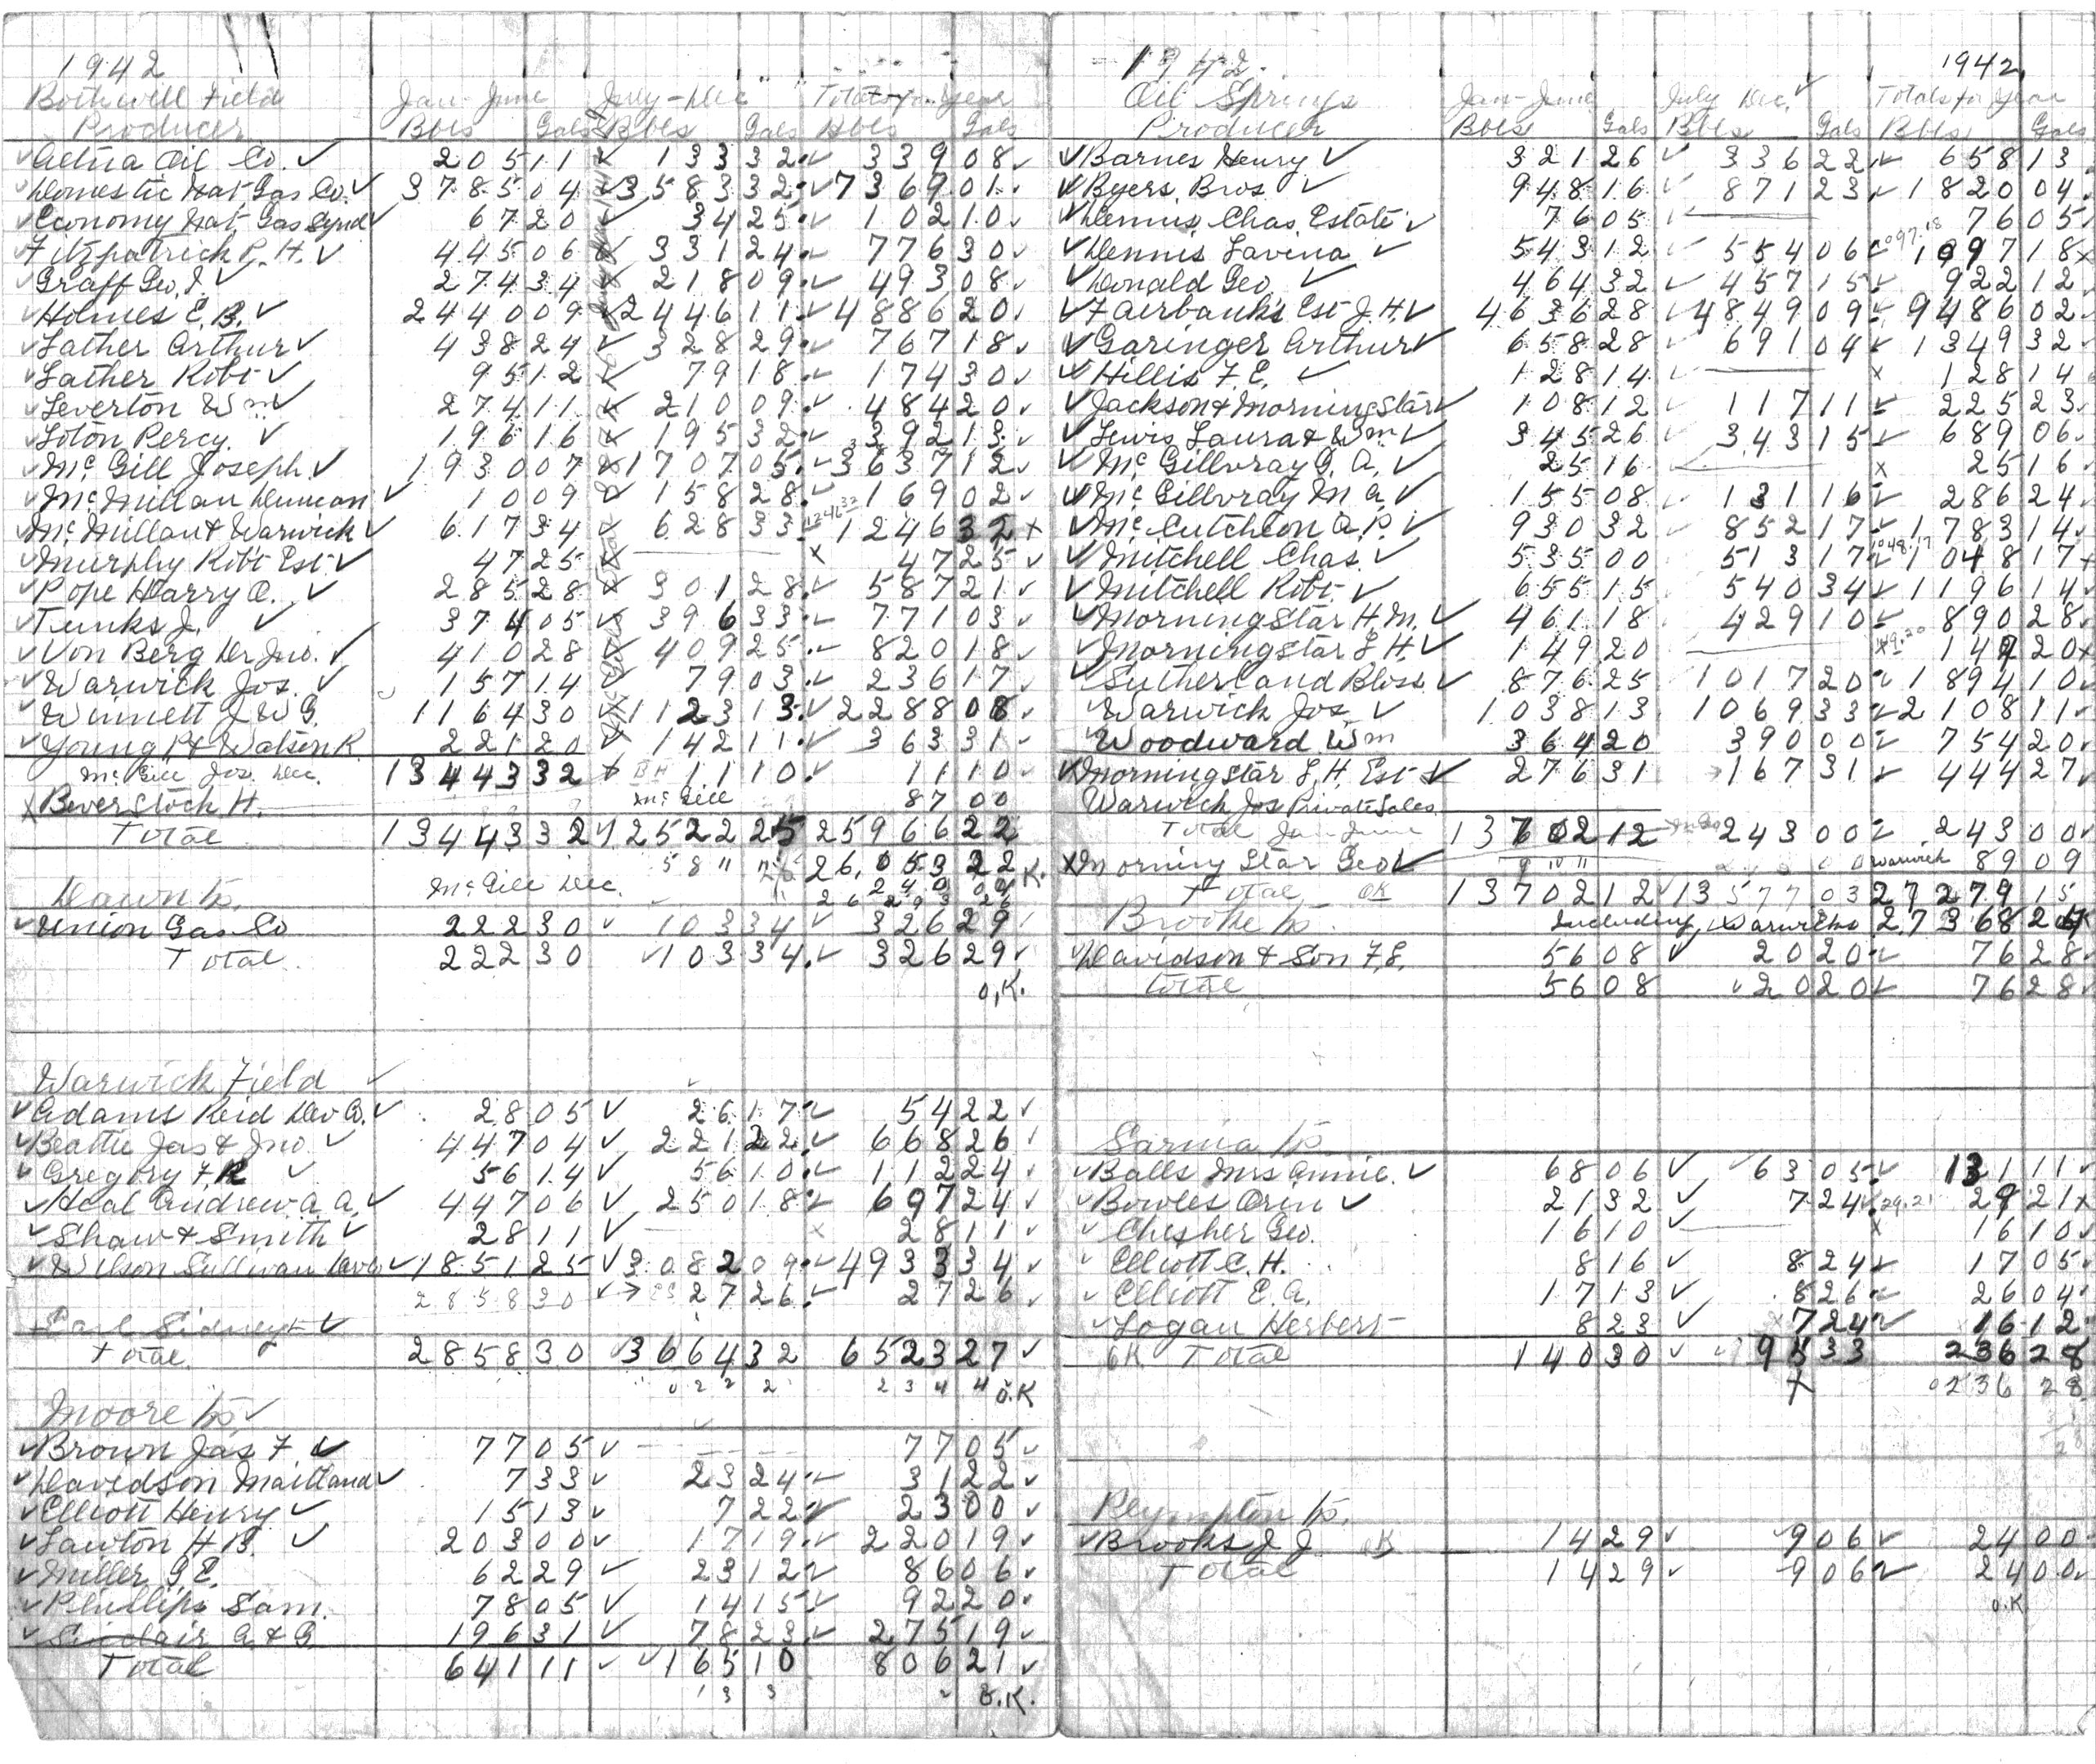 1942
Bothwell Field Jan-June July-Dec Totals for Year
Producer Bbls Gals Bbls Gals Bbls Gals
✓ Aetna Oil Co. ✓ 205 11 ✓ 133 32 ✓ 339 08 ✓
✓ Domestic Nat. Gas Co. ✓ 3785 04 ✓ 3583 32 ✓ 7369 01 ✓
✓ Economy Nat. Gas Synd ✓ 67 20 ✓ 34 25 ✓ 102 10 ✓
✓ Fitzpatrick P. H. ✓ 445 06 ✓ 331 24 ✓ 776 30 ✓
✓ Graff Geo. J. ✓ 274 34 ✓ 218 09 ✓ 493 08 ✓
✓ Holmes E. B. ✓ 2440 09 ✓ 2446 11 ✓ 4886 20 ✓
✓ Lather Arthur ✓ 438 24 ✓ 328 29 ✓ 767 18 ✓
✓ Lather Robt ✓ 95 12 ✓ 79 18 ✓ 174 30 ✓
✓ Leverton Wm ✓ 274 11 ✓ 210 09 ✓ 484 20 ✓
✓ Loton Percy. ✓ 196 16 ✓ 195 32 ✓ 392 13 ✓
✓ McGill Joseph ✓ 1930 07 ✓ 1707 05 ✓ 3637 12 ✓
✓ McMillan Duncan ✓ 10 09 ✓ 158 28 ✓ 169 02 ✓
✓ McMillan & Warwick ✓ 617 34 ✓ 628 33 ✓ 1246 32 x
✓ Murphy Robt Est ✓ 47 25 x — x 47 25 ✓
✓ Pope Harry A. ✓ 285 28 ✓ 301 28 ✓ 587 21 ✓
✓ Tunks J. ✓ 374 05 ✓ 396 33 ✓ 771 03 ✓
✓ Von Berg Dr Jno. ✓ 410 28 ✓ 409 25 ✓ 820 18 ✓
✓ Warwick Jos. ✓ 157 14 ✓ 79 03 ✓ 236 17 ✓
✓ Winnett J W G. 1164 30 ✓ 1123 13 ✓ 2288 08 ✓
✓ Young P & Watson R 221 20 ✓ 142 11 ✓ 363 31 ✓
McGill Jos. Dec. 13443 32 ✓ BH 11 10 ✓ 11 10 ✓
x Beverstock H. McGill 87 00
Total 13443 32 ✓ 12522 25 25966 22
58 " 26,053 22 K.
McGill Dec. 240 04
Dawn Tp. 26293 26
✓ Union Gas Co 222 30 ✓ 103 34 ✓ 326 29 ✓
Total 222 30 ✓ 103 34 ✓ 326 29 ✓
O.K.
Warwick Field ✓
✓ Adams Reid Dev Co. ✓ 28 05 ✓ 26 17 ✓ 54 22 ✓
✓ Beattie Jas & Jno ✓ 447 04 ✓ 221 22 ✓ 668 26 ✓
✓ Gregory F. R ✓ 56 14 ✓ 56 10 ✓ 112 24 ✓
✓ Heal Andrew A. A. ✓ 447 06 ✓ 250 18 ✓ 697 24 ✓
✓ Shaw & Smith ✓ 28 11 ✓ — x 28 11 ✓
✓ Wilson Sullivan Dev Co ✓ 1851 25 ✓ 3082 09 ✓ 4933 34 ✓
2858 30 ✓ → 27 26 ✓ 27 26 ✓
Earl Sidney ✓
Total 2858 30 ✓ 3664 32 6523 27 ✓
0 2 2 2 2 3 4 4 O.K
Moore Tp ✓
✓ Brown Jas F ✓ 77 05 ✓ — 77 05 ✓
✓ Davidson Maitland ✓ 7 33 ✓ 23 24 ✓ 31 22 ✓
✓ Elliott Henry ✓ 15 13 ✓ 7 22 ✓ 23 00 ✓
✓ Lawton H B. ✓ 203 00 ✓ 17 19 ✓ 220 19 ✓
✓ Miller G E. 62 29 ✓ 23 12 ✓ 86 06 ✓
✓ Phillips Sam. 78 05 ✓ 14 15 ✓ 92 20 ✓
✓ Sinclair A. & G. 196 31 ✓ 78 23 ✓ 275 19 ✓
Total 641 11 ✓ ✓ 165 10 806 21 ✓
1 3 3 O.K.
1942. 1942
Oil Springs Jan-June July Dec. ✓ Totals for Year
Producer Bbls Gals Bbls Gals Bbls Gals
✓ Barnes Henry ✓ 321 26 ✓ 336 22 ✓ 658 13
✓ Byers Bros. ✓ 948 16 ✓ 871 23 ✓ 1820 04
✓ Dennis, Chas. Estate ✓ 76 05 ✓ — 76 05
✓ Dennis Lavina ✓ 543 12 ✓ 554 06 ✓ 1097.18 1097 18 x
✓ Donald Geo. ✓ 464 32 ✓ 457 15 ✓ 922 12
✓ Fairbanks Est J. H. ✓ 4636 28 ✓ 4849 09 ✓ 9486 02
✓ Garinger Arthur ✓ 658 28 ✓ 691 04 ✓ 1349 32
✓ Hillis F. E. ✓ 128 14 ✓ — x 128 14
✓ Jackson & Morningstar ✓ 108 12 ✓ 117 11 ✓ 225 23
✓ Lewis, Laura & Wm ✓ 345 26 ✓ 343 15 ✓ 689 06
✓ McGillvray G. A. ✓ 25 16 ✓ — x 25 16
✓ McGillvray M a. ✓ 155 08 ✓ 131 16 ✓ 286 24
✓ McCutcheon A. P. ✓ 930 32 ✓ 852 17 ✓ 1783 14
✓ Mitchell Chas. ✓ 535 00 513 17 ✓ 1048.17 1048 17 x
✓ Mitchell Robt. ✓ 655 15 540 34 ✓ 1196 14
✓ Morningstar H. M. ✓ 461 18 429 10 ✓ 890 28
✓ Morningstar L H. ✓ 149 20 — x 149.20 149 20 x
✓ Sutherland Bloss ✓ 876 25 1017 20 ✓ 1894 10
Warwick Jos. ✓ 1038 13 1069 33 ✓ 2108 11
Woodward Wm 364 20 390 00 ✓ 754 20
✓ Morningstar L. H. Est ✓ 276 31 → 167 31 ✓ 444 27
Warwick Jos Private Sales
Total Jan-June 13702 12 243 00 ✓ 243 00
x Morning Star Geo ✓ Warwick 89 09
Total OK 13702 12 ✓ 13577 03 27279 15
Brooke Tp. Including Warwicks 27368 24
✓ Davidson & Son F. E. 56 08 ✓ 20 20 ✓ 76 28
Total 56 08 ✓ 20 20 ✓ 76 28
Sarnia Tp
✓ Balls Mrs Annie. ✓ 68 06 ✓ ✓ 63 05 ✓ 131 11
✓ Bowles Orin ✓ 21 32 ✓ 7 24 ✓ 29.21 29 21 x
✓ Chesher Geo. 16 10 ✓ — x 16 10
✓ Elliott C. H. 8 16 ✓ 8 24 ✓ 17 05
✓ Elliott E. A. 17 13 ✓ 8 26 ✓ 26 04
✓ Logan Herbert 8 23 ✓ 7 24 ✓ 16 12
OK Total 140 30 ✓ 95 33 236 28
x 0236 28
Plympton Tp.
✓ Brooks J J OK 14 29 ✓ ✓ 9 06 ✓ 24 00
Total 14 29 ✓ ✓ 9 06 ✓ 24 00
O.K